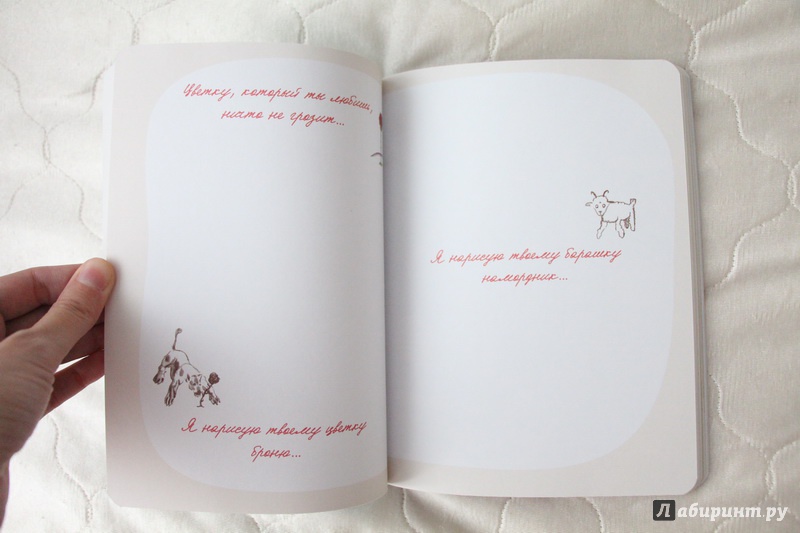 Цветку, который ты любишь,
ничто не грозит...
Я нарисую твоему цветку
броню...
Я нарисую твоему барашку
намордник...
Лабиринт.ру